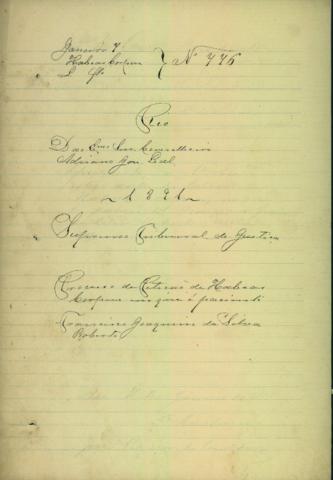 Janeiro 7
Habeas Corpus } Nº 776
L. fls
Rio
Do Exmo Snr. Conselheiro
Adriano José Leal
~ 1 8 9 1 ~
Supremo Tribunal de Justiça
Processo de Petição de Habeas
Corpus em que é paciente
Francisco Joaquim da Silva
Roberto